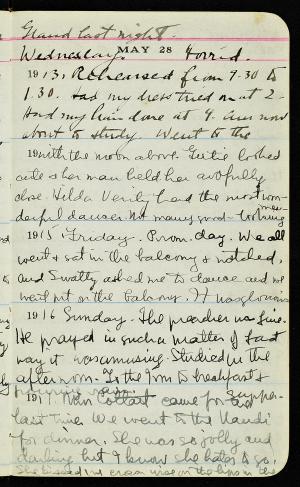 Grand last night.
Wednesday. MAY 28 Horrid.
1913, Rehearsed from 9.30 to
1.30. Had my dress tried on at 2-
Had my hair done at 4. Am now
about to study. Went to the
19 with the moon above. Gertie looked
cute & her man held her awfully
close. Hilda Verity had the most won-
derful dances. Not many good-looking men-
1915 Friday. Prom. day. We all
went & sat in the balcony & watched,
and Swatty asked me to dance and we
went out on the balcony. It was glorious
1916 Sunday. The preacher was fine.
He prayed in such a matter of fact
way it was amusing. Studied in the
afternoon. To the Inn to breakfast &
191 Van came for supper-
last time. We went to the
for dinner. She was so jolly and
darling but I know she hates to go.
She kissed me on the lips in the